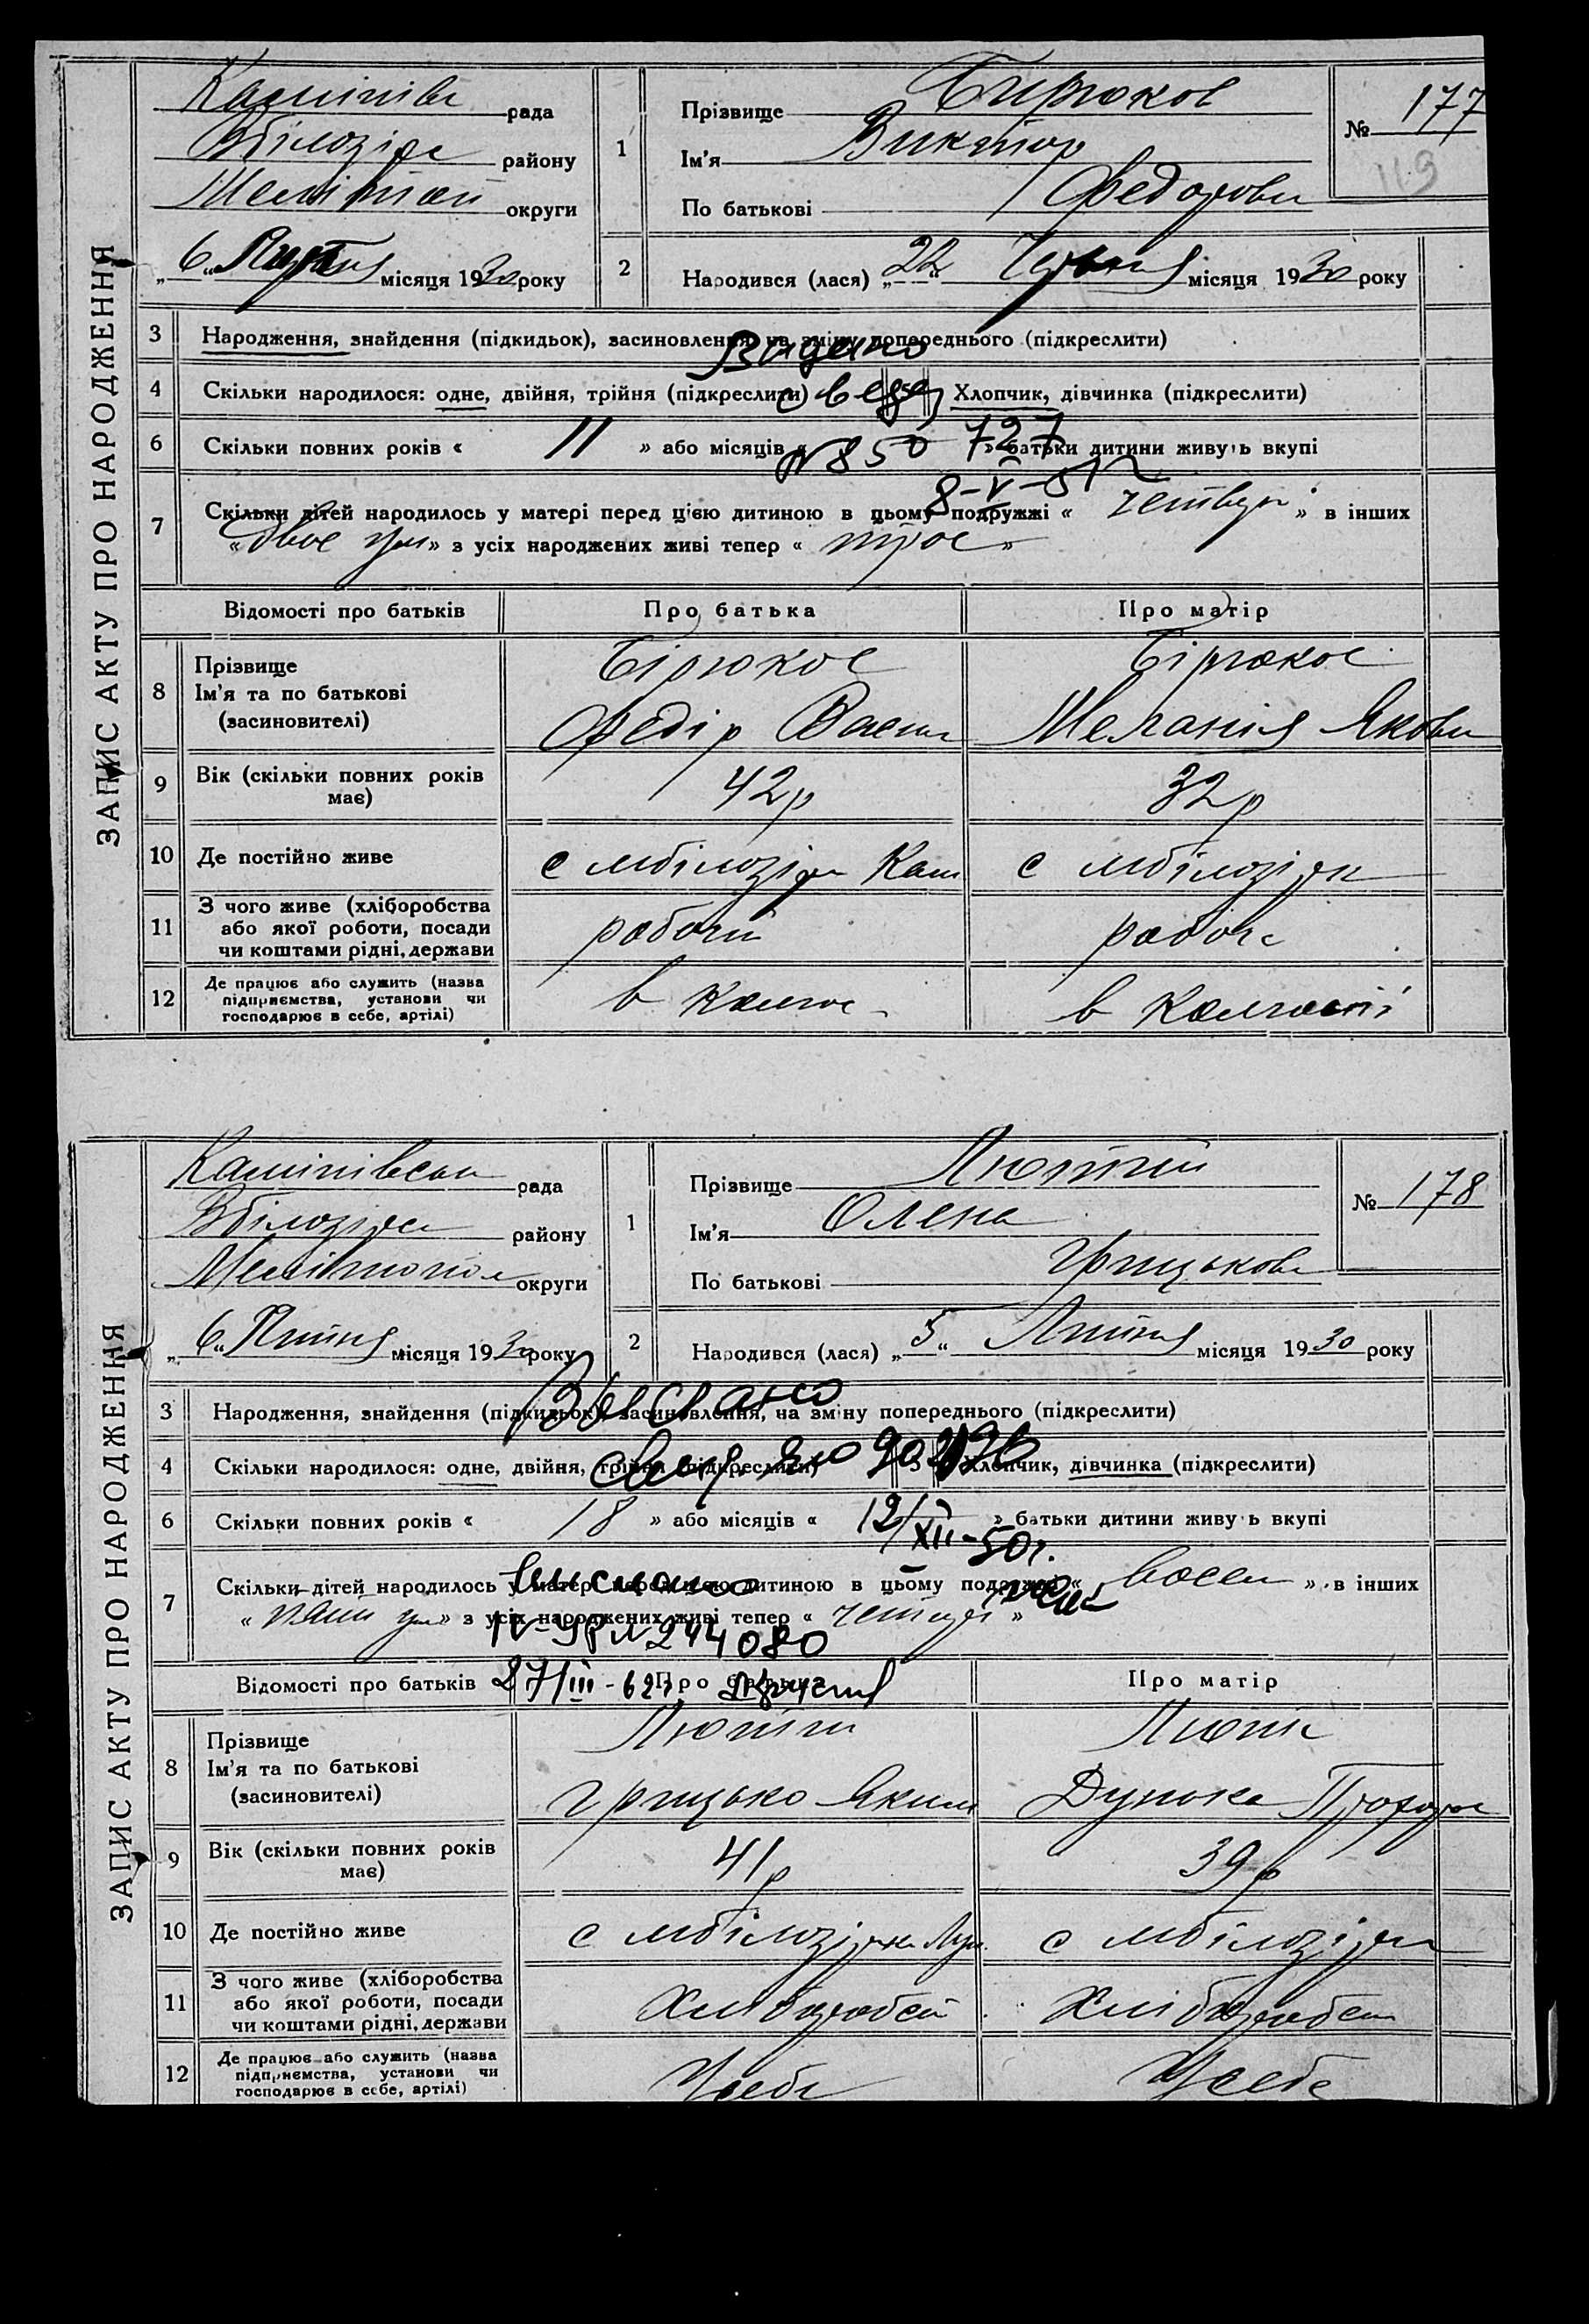 ЗАПИС АКТУ ПРО НАРОДЖЕННЯ
рада
району
Мелітоп округи
6 місяця 1930 року
1
Прізвище Бирюков
Ім'я Виктор
По батькові Федорови
№ 177
119
2
Народився (лася) „22“ Червня місяця 1930 року
3 Народження, знайдення (підкидьок), засиновлення, на зміну попереднього (підкреслити)
Видано
4 Скільки народилося: одне, двійня, трійня (підкреслити) 5 Хлопчик, дівчинка (підкреслити)
6 Скільки повних років « 11 » або місяців « » батьки дитини живуть вкупі
№ 850 727
8-V-51
7 Скільки дітей народилось у матері перед цією дитиною в цьому подружжі « » в інших
« двое » з усіх народжених живі тепер « трое »
Відомості про батьків Про батька Про матір
8 Прізвище Бірюков Бірюков
Ім'я та по батькові
(засиновителі) Федір Васил Меланія Якови
9 Вік (скільки повних років має) 42р 32р
10 Де постійно живе с мбілозірк Кам с мбілозірк
11 З чого живе (хліборобства
або якої роботи, посади
чи коштами рідні, держави робочий робоча
12 Де працює або служить (назва
підприємства, установи чи
господарює в себе, артілі) в колгос в колгоспі
ЗАПИС АКТУ ПРО НАРОДЖЕННЯ
рада
району
Мелітопол округи
„6“ Липня місяця 1930 року
1
Прізвище Лютий
Ім'я Олена
По батькові Грицькова
№ 178
2
Народився (лася) „5“ Липня місяця 1930 року
3 Народження, знайдення (підкидьок), засиновлення, на зміну попереднього (підкреслити)
Выслано
4 Скільки народилося: одне, двійня, трійня (підкреслити) 5 Хлопчик, дівчинка (підкреслити)
6 Скільки повних років « 18 » або місяців « » батьки дитини живуть вкупі
12/XII-50г.
7 Скільки дітей народилось у матері перед цією дитиною в цьому подружжі « восем » в інших
выслано
« » з усіх народжених живі тепер « »
IV-ЯР № 244080
27/III-62г
Відомості про батьків Про батька Про матір
8 Прізвище Лютий Люта
Ім'я та по батькові
(засиновителі) Грицько Яким Дунька
9 Вік (скільки повних років має) 41р 39р
10 Де постійно живе с мбілозірка с мбілозірк
11 З чого живе (хліборобства
або якої роботи, посади
чи коштами рідні, держави Хлібороб Хлібороб
12 Де працює або служить (назва
підприємства, установи чи
господарює в себе, артілі) Усебе Усебе